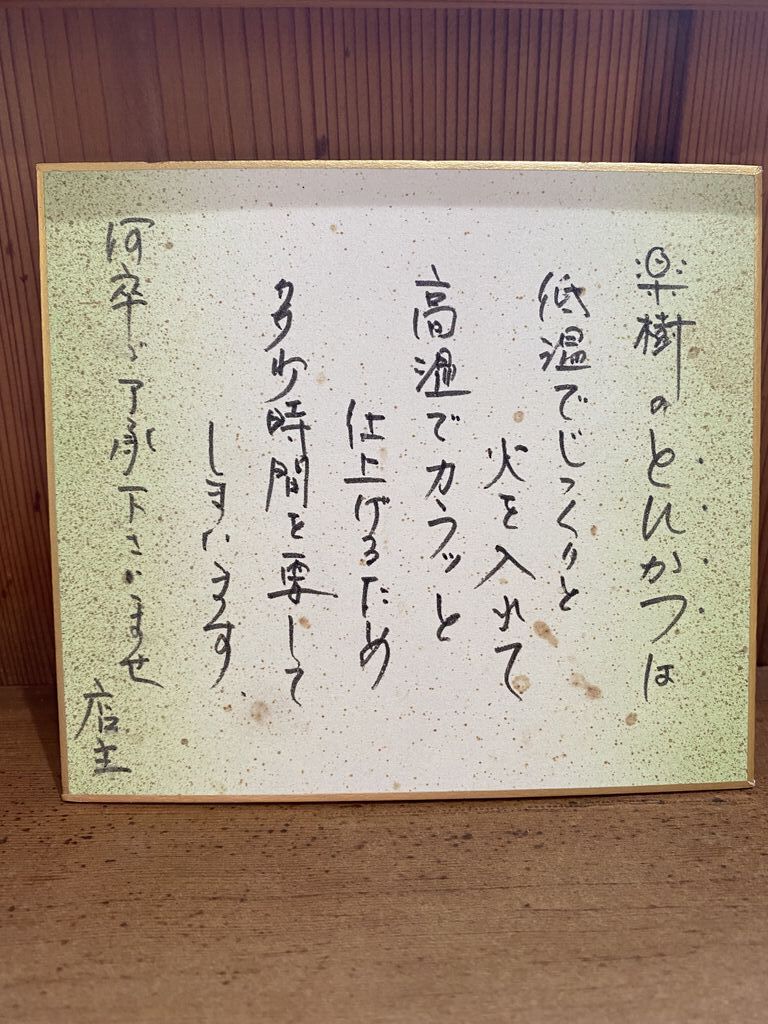 楽樹のとんかつは
低温でじっくりと
火を入れて
高温でカラッと
仕上げるため
多少時間を要して
しまいます
何卒ご了承下さいませ
店主